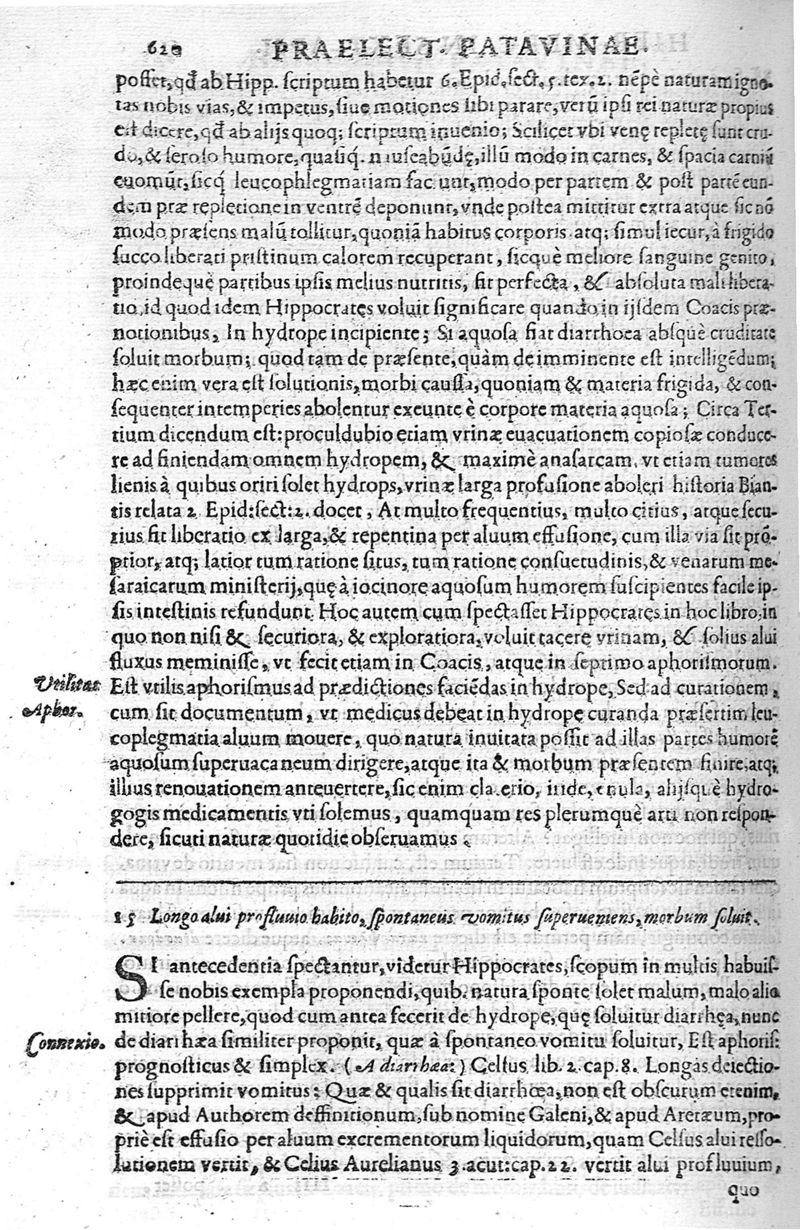 620 PRAELECT. PATAVINAE.
posset, qđ ab Hipp. scriptum habetur 6. Epid. sect. 5. tex. 2. nēpè naturam igno-
tas nobis vias, & impetus, siue motiones sibi parare, verū ipsi rei naturæ propius
est dicere, qđ ab alijs quoq; scriptum inuenio; Scilicet vbi venę repletę sunt cru-
do, & seroso humore, quasiq. nauseabūdę, illū modo in carnes, & spacia carniū
euomūt, sicq leucophlegmatiam faciunt, modo per partem & post partē eun-
dem præ repletione in ventrē deponunt, vnde postea mittitur extra atque sic nō
modo præsens malū tollitur, quoniā habitus corporis atq; simul iecur, à frigido
succo liberati pristinum calorem recuperant, sicquè meliore sanguine genito,
proindequè partibus ipsis melius nutritis, fit perfecta, & absoluta mali libera-
tio, id quod idem Hippocratęs voluit significare quando in ijsdem Coacis præ-
notionibus, In hydrope incipiente; Si aquosa fiat diarrhoea absquè cruditate
soluit morbum; quod tam de præsente, quàm de imminente est intelligēdum;
hæc enim vera est solutionis, morbi caussa, quoniam & materia frigida, & con-
sequenter intemperies abolentur exeunte è corpore materia aquosa; Circa Ter-
tium dicendum est: proculdubio etiam vrinæ euacuationem copiosæ conduce-
re ad finiendam omnem hydropem, & maximè anasarcam, vt etiam tumores
lienis à quibus oriri solet hydrops, vrinæ larga profusione aboleri historia Bian-
tis relata 2. Epid: sect: 2. docet, At multo frequentius, multo citius, atque secu-
rius fit liberatio ex larga, & repentina per aluum effusione, cum illa via sit prō-
ptior, atq; latior tum ratione situs, tum ratione consuetudinis, & venarum me-
saraicarum ministerij, quę à iocinore aquosum humorem suscipientes facile ip-
sis intestinis refundunt. Hoc autem cum spectasset Hippocratęs in hoc libro, in
quo non nisi & securiora, & exploratiora, voluit tacere vrinam, & solius alui
fluxus meminisse, vt fecit etiam in Coacis, atque in septimo aphorismorum.
Vtilitas Est vtilis aphorismus ad prædictiones faciēdas in hydrope, Sed ad curationem,
Aphor. cum sit documentum, vt medicus debeat in hydropę curanda præsertim leu-
coplegmatia aluum mouere, quo natura inuitata possit ad illas partes humorē
aquosum superuacaneum dirigere, atque ita & morbum præsentem finire, atq;
illius renouationem anteuertere, sic enim elaterio, alijsquè hydro-
gogis medicamentis vti solemus, quamquam res plerumquè arti non respon-
dere, sicuti naturæ quotidie obseruamus.
15 Longo alui profluuio habito, spontaneus vomitus superueniens, morbum soluit.
SI antecedentia spectantur, videtur Hippocrates, scopum in multis habuis-
se nobis exempla proponendi, quib. natura sponte solet malum, malo alio
mitiore pellere, quod cum antea fecerit de hydrope, quę soluitur diarrhęa, nunc
Connexio. de diarrhæa similiter proponit, quæ à spontaneo vomitu soluitur, Est aphoris:
prognosticus & simplex. (A diarrhæa:) Celsus lib. 2. cap. 8. Longas deiectio-
nes supprimit vomitus: Quæ & qualis sit diarrhœa, non est obscurum etenim,
& apud Authorem deffinitionum, sub nomine Galeni, & apud Aretæum, pro-
priè est effusio per aluum excrementorum liquidorum, quam Celsus alui resso-
lutionem vertit, & Celius Aurelianus 3. acut: cap. 22. vertit alui profluuium,
quo